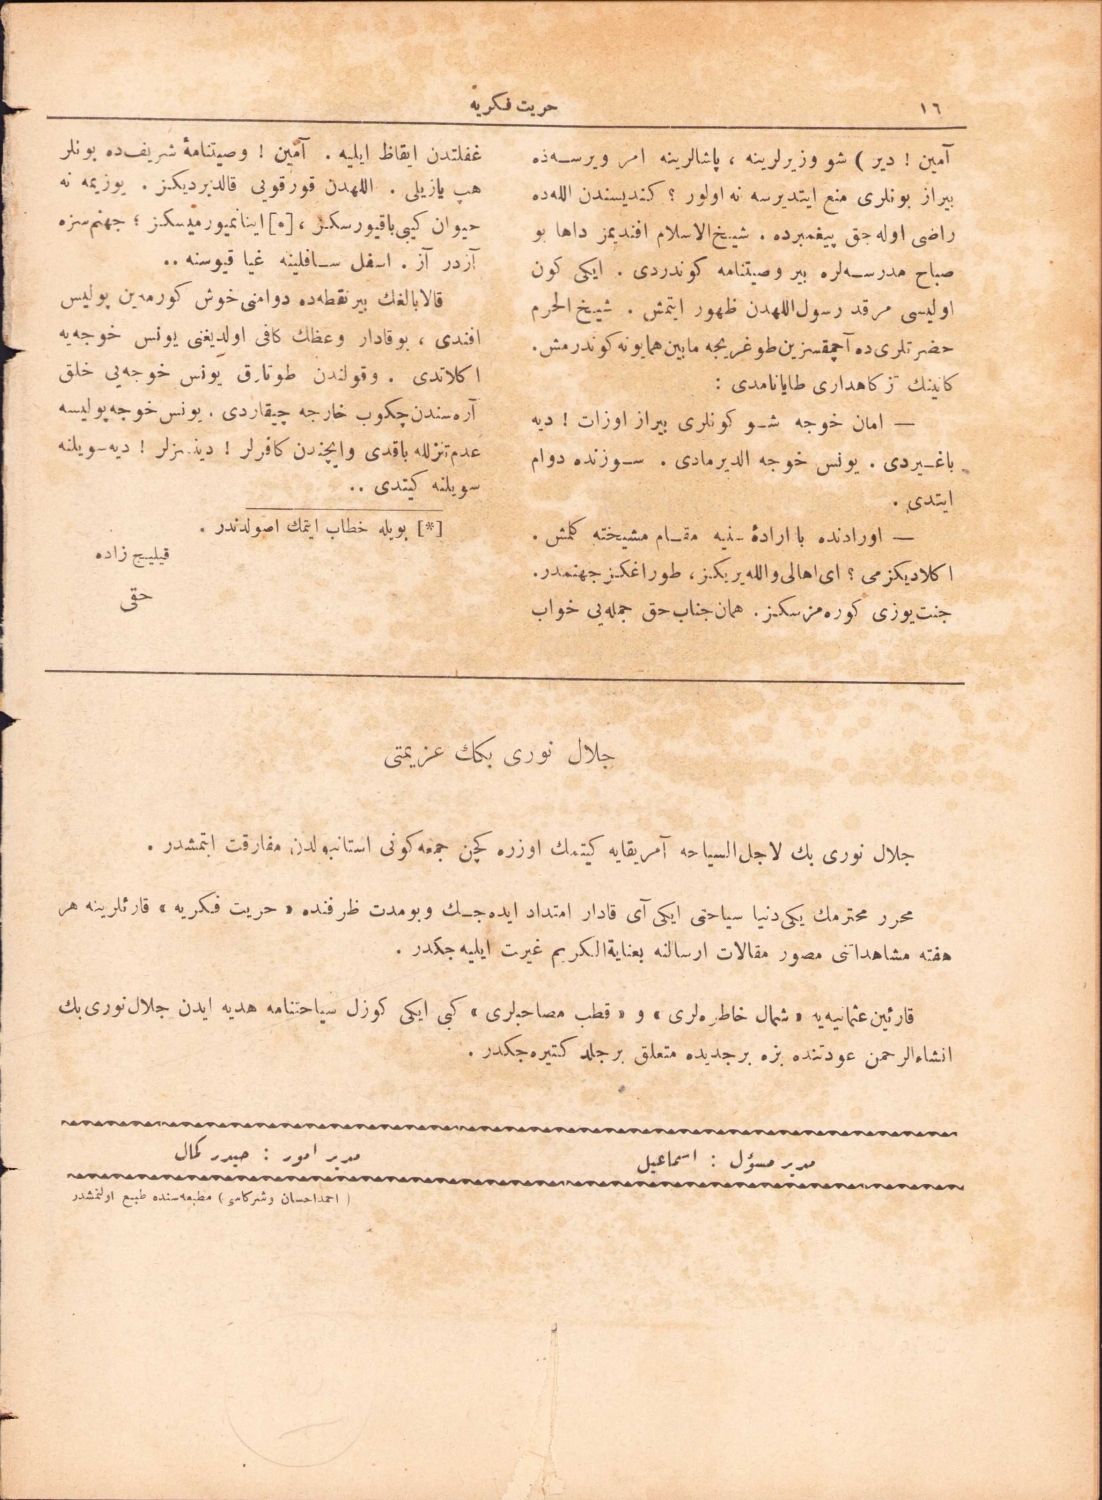 ١٦
حریت فکریه
آمین ! دیر ) شو وزیرلرینه ، پاشالرینه امر ویرسه ده
بیراز بونلری منع ایتدیرسه نه اولور ؟ کندیسندن الله ده
راضی اوله جق پیغمبرده . شیخ الاسلام افندیمز داها بو
صباح مدرسه لره بیر وصیتنامه کوندردی . ایکی کون
اولیسی مرقد رسول اللهدن ظهور ایتمش . شیخ الحرم
حضرتلری ده آچمقسزین طوغریجه مابین همایونه کوندرمش.
کانینك تزکاهداری طایانامدی :
— امان خوجه شو کونلری بیراز اوزات ! دیه
باغیردی . یونس خوجه الدیرمادی . سوزنده دوام
ایتدی .
— اورادنده با ارادۀ سنیه مقام مشیخته کلمش .
اکلادیکزمی ؟ ای اهالی والله یریکز، طوراغکز جهنمدر.
جنت یوزی کوره مزسکز. همان جناب حق جمله یی خواب
غفلتدن ایقاظ ایلیه . آمین ! وصیتنامۀ شریف ده بونلر
هپ یازیلی . اللهدن قورقویی قالدیردیکز . یوزیمه نه
حیوان کیبی باقیورسکز ، [*] اینانمیورمیسکز ؛ جهنم سزه
آزدر آز . اسفل سافلینه غیا قیوسنه ..
قالابالغك بیر نقطه ده دوامنی خوش کورمه ین پولیس
افندی ، بوقادار وعظك کافی اولدیغنی یونس خوجه یه
اکلاتدی . وقولندن طوتارق یونس خوجه یی خلق
آره سندن چکوب خارجه چیقاردی . یونس خوجه پولیسه
عدم تنزلله باقدی وایچندن کافرلر ! دینسزلر ! دیه سویلنه
سویلنه کیتدی ..
[*] بویله خطاب ایتمك اصولدندر .
قیلیچ زاده
حقی
جلال نوری بکك عزیمتی
جلال نوری بك لاجل السیاحه آمریقایه کیتمك اوزره کچن جمعه کونی استانبولدن مفارقت ایتمشدر .
محرر محترمك یکی دنیا سیاحتی ایکی آی قادار امتداد ایده جك وبومدت ظرفنده « حریت فکریه » قارئلرینه هر
هفته مشاهداتنی مصور مقالات ارسالنه بعنایة الکریم غیرت ایلیه جکدر .
قارئین عثمانیه یه « شمال خاطره لری » و « قطب مصاحبلری » کبی ایکی کوزل سیاحتنامه هدیه ایدن جلال نوری بك
انشاء الرحمن عودتنده بزه بر جدیده متعلق بر جلد کتیره جکدر .
مدیر مسؤل : اسماعیل
مدیر امور : حیدر کمال
( احمد احسان وشرکاسی ) مطبعه سنده طبع اولنمشدر